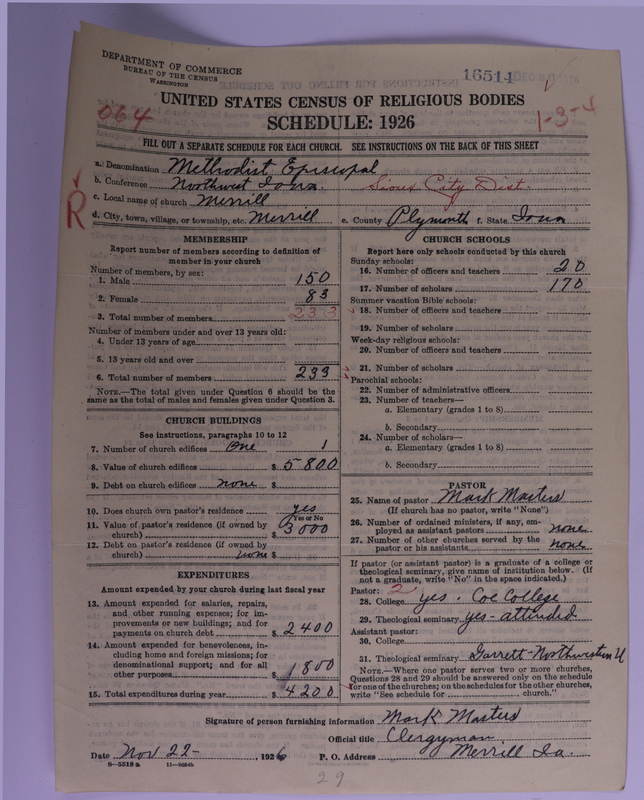 DEPARTMENT OF COMMERCE
BUREAU OF THE CENSUS
WASHINGTON
16514
064
UNITED STATES CENSUS OF RELIGIOUS BODIES
SCHEDULE: 1926
1-3-4
FILL OUT A SEPARATE SCHEDULE FOR EACH CHURCH. SEE INSTRUCTIONS ON THE BACK OF THIS SHEET
R
a. Denomination Methodist Episcopal
b. Conference Northwest Iowa. Sioux City Dist.
c. Local name of church Merrill
d. City, town, village, or township, etc. Merrill e. County Plymouth f. State Iowa
MEMBERSHIP
Report number of members according to definition of
member in your church
Number of members, by sex:
1. Male 150
2. Female 83
3. Total number of members 233
Number of members under and over 13 years old:
4. Under 13 years of age
5. 13 years old and over
6. Total number of members 233
NOTE.—The total given under Question 6 should be the
same as the total of males and females given under Question 3.
CHURCH BUILDINGS
See instructions, paragraphs 10 to 12
7. Number of church edifices One 1
8. Value of church edifices $ 5800
9. Debt on church edifices none $
10. Does church own pastor's residence yes
Yes or No
11. Value of pastor's residence (if owned by
church) $ 3000
12. Debt on pastor's residence (if owned by
church) none $
EXPENDITURES
Amount expended by your church during last fiscal year
13. Amount expended for salaries, repairs,
and other running expenses; for im-
provements or new buildings; and for
payments on church debt $ 2400
14. Amount expended for benevolences, in-
cluding home and foreign missions; for
denominational support; and for all
other purposes $ 1800
15. Total expenditures during year $ 4200
CHURCH SCHOOLS
Report here only schools conducted by this church
Sunday schools:
16. Number of officers and teachers 20
17. Number of scholars 170
Summer vacation Bible schools:
18. Number of officers and teachers
19. Number of scholars
Week-day religious schools:
20. Number of officers and teachers
21. Number of scholars
Parochial schools:
22. Number of administrative officers
23. Number of teachers—
a. Elementary (grades 1 to 8)
b. Secondary
24. Number of scholars—
a. Elementary (grades 1 to 8)
b. Secondary
PASTOR
25. Name of pastor Mark Masters
(If church has no pastor, write "None")
26. Number of ordained ministers, if any, em-
ployed as assistant pastors none
27. Number of other churches served by the
pastor or his assistants none
If pastor (or assistant pastor) is a graduate of a college or
theological seminary, give name of institution below. (If
not a graduate, write "No" in the space indicated.)
Pastor: 2
28. College yes. Coe College
29. Theological seminary yes - attended
Assistant pastor:
30. College
31. Theological seminary Garrett - Northwestern U
NOTE.—Where one pastor serves two or more churches,
Questions 28 and 29 should be answered only on the schedule
for one of the churches; on the schedules for the other churches,
write "See schedule for church."
Signature of person furnishing information Mark Masters
Official title Clergyman
Date Nov 22-, 1926 P. O. Address Merrill Ia.
S—5518 a
29